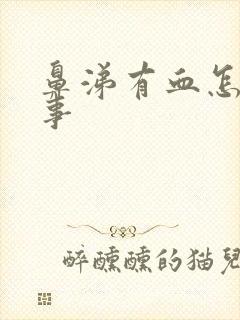 鼻涕有血怎
事
醉醺醺的猫兒